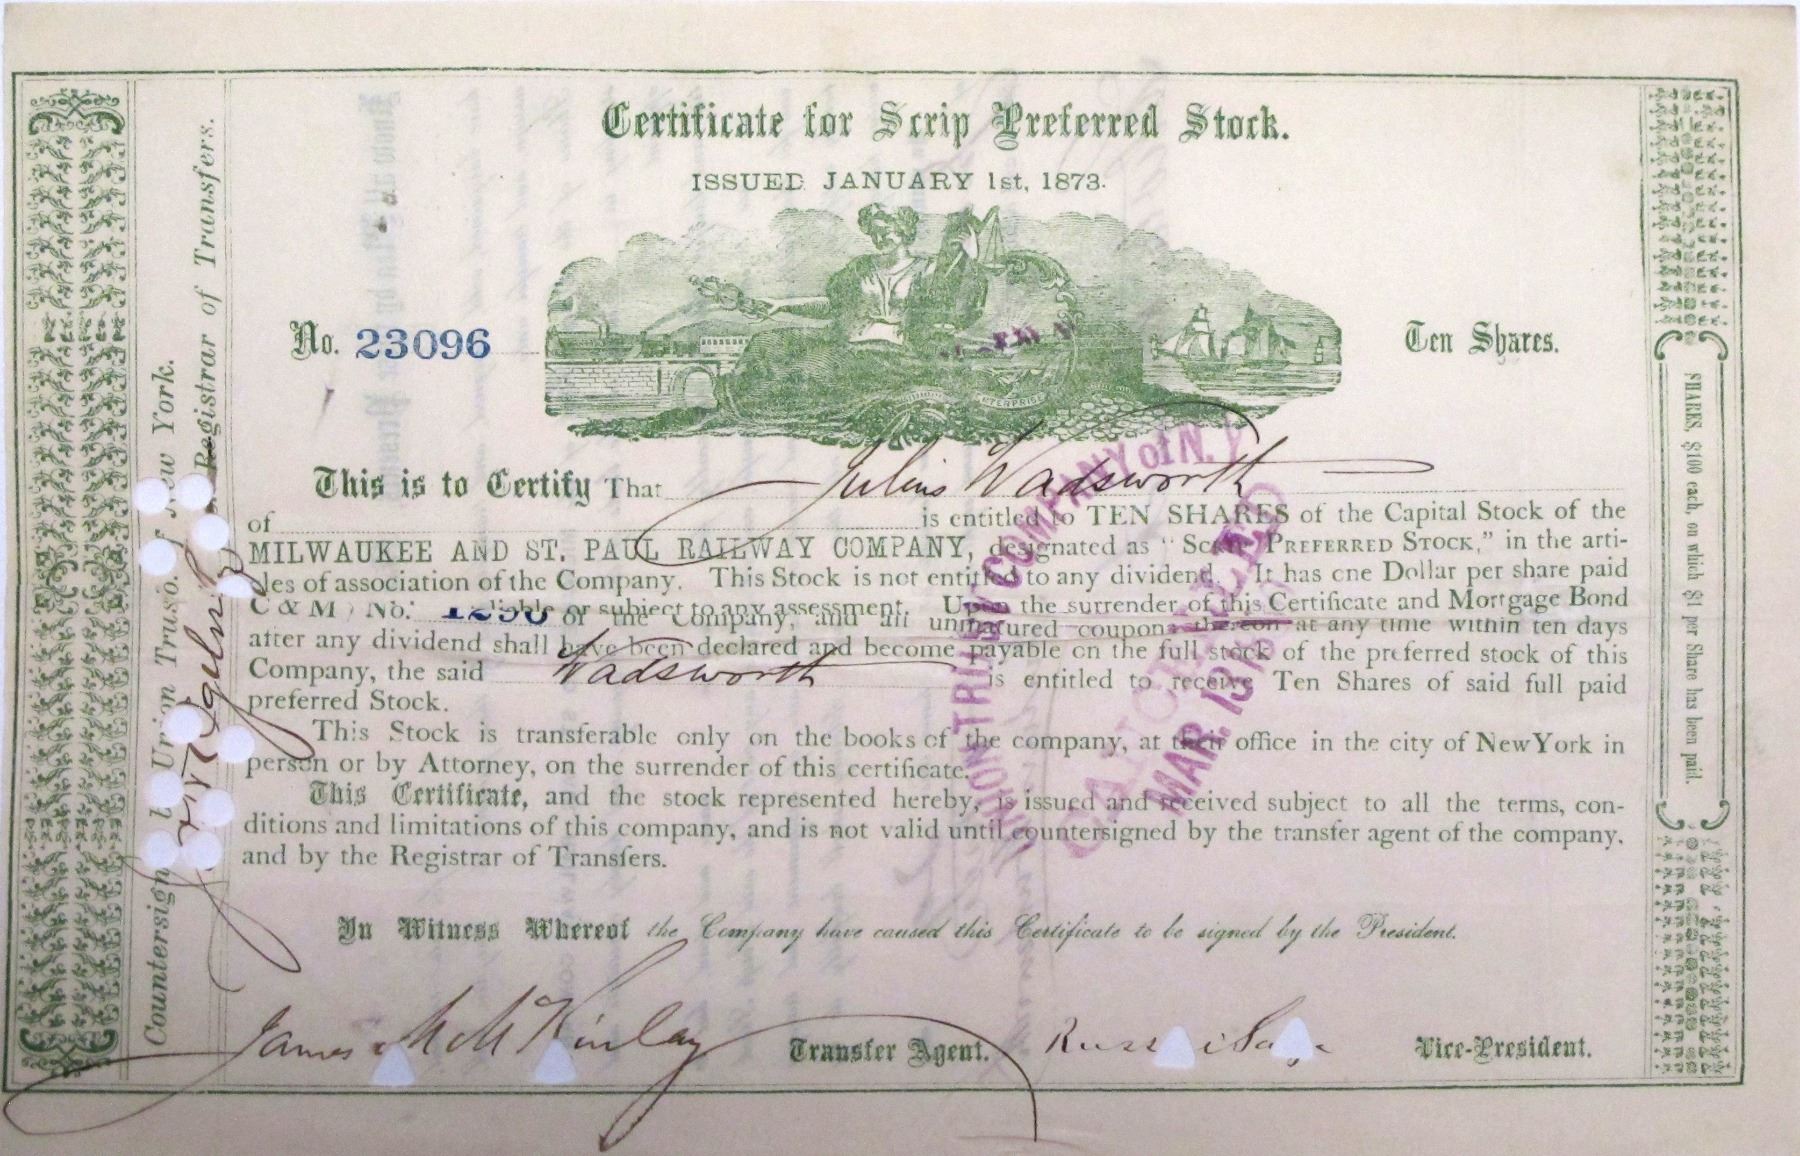 Certificate for Scrip Preferred Stock.
ISSUED JANUARY 1st, 1873.
No. 23096
Ten Shares.
This is to Certify That Julius Wadsworth
of is entitled to TEN SHARES of the Capital Stock of the
MILWAUKEE AND ST. PAUL RAILWAY COMPANY, designated as "Scrip Preferred Stock," in the arti-
cles of association of the Company. This Stock is not entitled to any dividend. It has one Dollar per share paid
liable or subject to any assessment. Upon the surrender of this Certificate and Mortgage Bond
C & M No. 1290 of the Company, and all unmatured coupons thereon at any time within ten days
after any dividend shall have been declared and become payable on the full stock of the preferred stock of this
Company, the said Wadsworth is entitled to receive Ten Shares of said full paid
preferred Stock.
This Stock is transferable only on the books of the company, at their office in the city of New York in
person or by Attorney, on the surrender of this certificate.
This Certificate, and the stock represented hereby, is issued and received subject to all the terms, con-
ditions and limitations of this company, and is not valid until countersigned by the transfer agent of the company,
and by the Registrar of Transfers.
In Witness Whereof the Company have caused this Certificate to be signed by the President.
James M McKinlay Transfer Agent. Russell Sage Vice-President.
Union Trust of New York.
Registrar of Transfers.
SHARES, $100 each, on which $1 per Share has been paid.
UNION TRUST COMPANY of N. Y.
CANCELLED
MAR. 13
ENTERPRISE